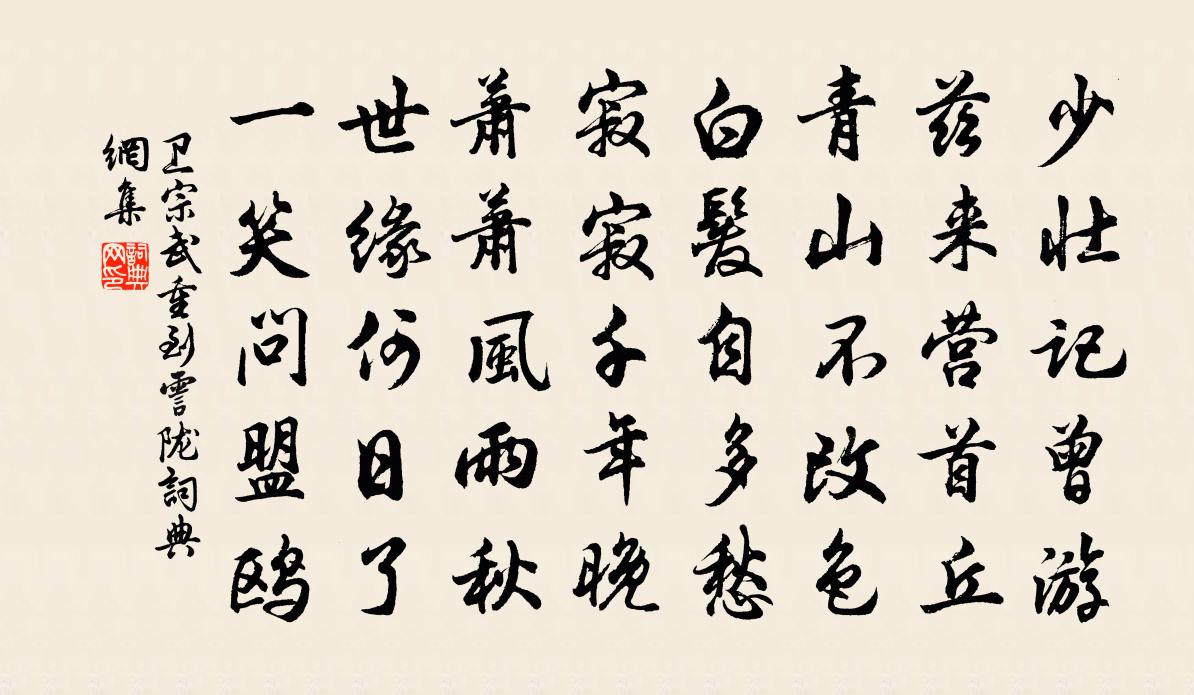 少壮记曽游
兹来营首丘
青山不改色
白髮自多愁
寂寂千年晚
萧萧風雨秋
世缘何日了
一笑问盟鸥
卫宗武重到雲陇詞典
網集
詞典网印